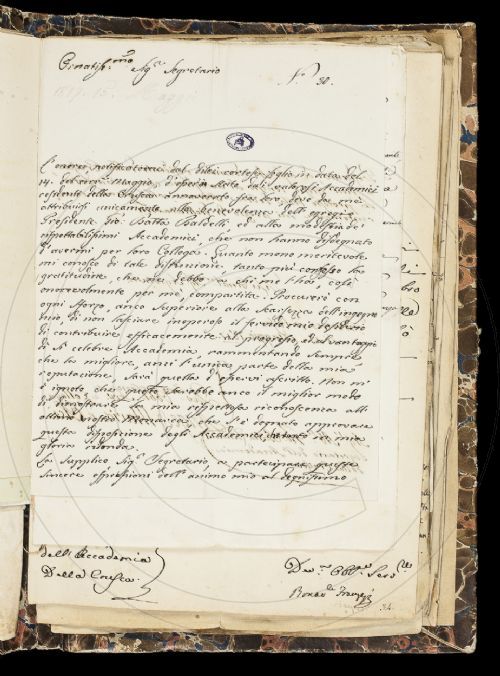 Ornatiss.mo Sig.r Segretario
N.o 30.
L'onor notificatomi dal di lei cortese foglio in data del
14. del corr. Maggio, d'essere stato dai Accademici
residenti della Crusca annoverato fra loro, deve da me
attribuirsi unicamente alla benevolenza dell'egregio
Presidente Gio: Batta Baldelli, ed alla modestia de'
rispettabilissimi Accademici, che non hanno disdegnato
d'avermi per loro Collega. Quanto meno meritevole
mi conosco di tale distinzione, tanto più conosco la
gratitudine che debbo a chi me l'ha, così
onorevolmente per me, compartita. Procurerò con
ogni sforzo, anco superiore alla scarsezza dell'ingegno
mio, di non lasciare inoperoso il fervido mio desiderio
di contribuire efficacemente al progresso, ed al vantaggio
di sì celebre Accademia, rammentando sempre
che la migliore, anzi l'unica parte della mia
reputazione sarà quella d'esservi ascritto. Non m'è
ignoto che questo sarebbe anco il miglior modo
di dimostrare la mia rispettosa riconoscenza all'
ottimo nostro Monarca, che s'è degnato approvare
questa disposizione degli Accademici in mia
gloria ridonda.
La supplico Sig.r Segretario, a partecipare queste
sincere espressioni dell'animo mio al degnissimo
dell'Accademia
Della Crusca
Dev.mo Obb.mo Serv.re
34.